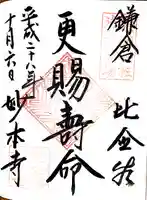 鎌倉
比企谷
更賜寿命
平成二十八年
十月六日
妙本寺